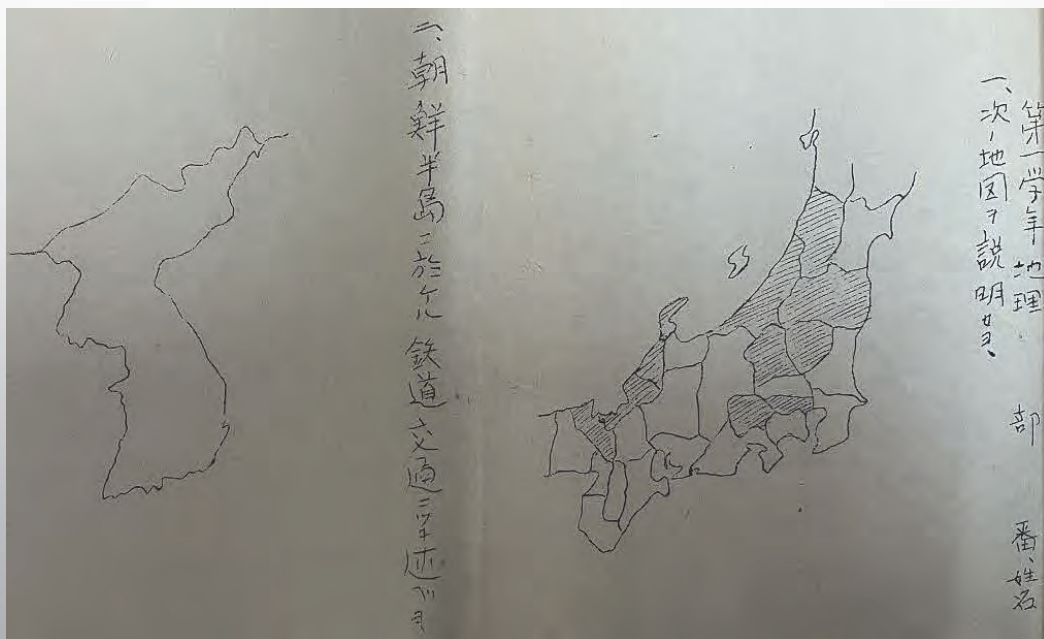 第一学年 地理、 部 番、姓名
一、次ノ地図ヲ説明セヨ、
二、朝鮮半島ニ於ケル鉄道交通ニツキ述ベヨ